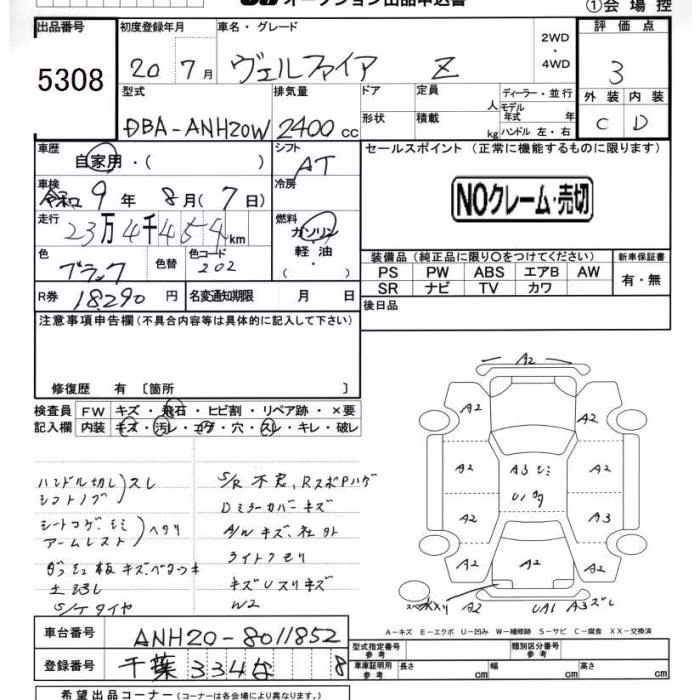 オークション出品申込書
①会場控
出品番号
5308
初度登録年月
20 7月
車名・グレード
ヴェルファイア Z
2WD
・
4WD
評価点
3
外装 内装
C D
型式
DBA-ANH20W
排気量
2400cc
ドア
形状
定員 人
積載 kg
ディーラー・並行
モデル年式 年
ハンドル 左・右
車歴
自家用・( )
シフト
AT
セールスポイント (正常に機能するものに限る)
NOクレーム・売切
車検
令和 9年 8月(7日)
冷房
走行
23万4千454km
燃料
ガソリン
軽油
・
色
ブラック
色替
色コード
202
装備品(純正品に限り○をつけてください)
新車保証書
PS PW ABS エアB AW
SR ナビ TV カワ
有・無
R券 18290円
名変通知期限 月 日
後日品
注意事項申告欄(不具合内容等は具体的に記入して下さい)
修復歴 有 〔箇所 〕
検査員 FW キズ・飛石・ヒビ割・リペア跡・×要
記入欄 内装 キズ・汚レ・コゲ・穴・スレ・キレ・破レ
ハンドル切レ スレ
シフトノブ
シートコゲ、シミ ヘタリ
アームレスト
ダッシュ板キズ、ベタツキ
S/Kタイヤ
S/R不良、RスポPハゲ
DミラーカバーキズA/Wキズ、社外
ライトクモリ
キズUスリキズ
W2
A2
A2 A2
A2 A3シミ A2
A2 A3
A2 A2 A2
A2 UA1 A3ズレ
A-キズ E-エクボ U-凹み W-補修跡 S-サビ C-腐食 XX-交換済
車台番号 ANH20-8011852
登録番号 千葉 334 な 8
型式指定番号 類別区分番号
車庫証明用参考 長さ cm 幅 cm 高さ cm
希望出品コーナー(コーナーは各会場により異なります。)